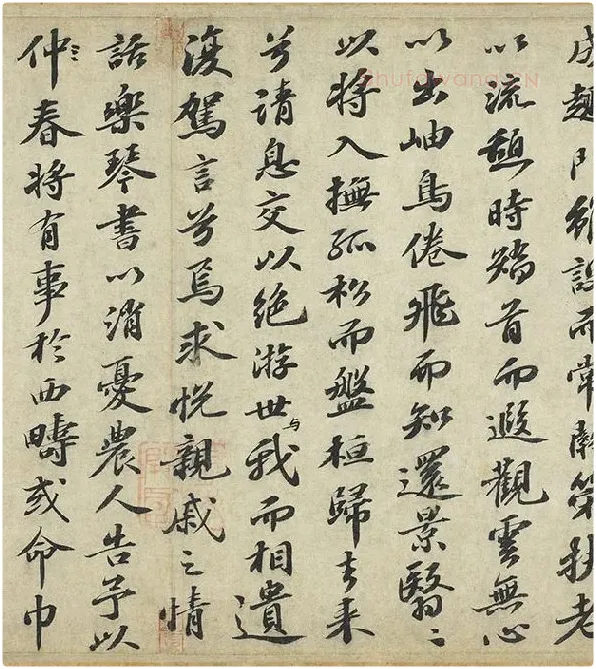 成趣門雖設而常關策扶老
以流憩時矯首而遐觀雲無心
以出岫鳥倦飛而知還景翳〻
以将入撫孤松而盤桓歸去来
兮請息交以絶游世与我而相遺
復駕言兮焉求悦親戚之情
話樂琴書以消憂農人告予以
仲〻春将有事於西疇或命巾
shufawang.CN